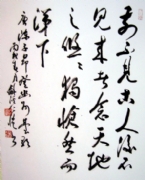 前不見古人後不
見来者念天地
之悠悠獨愴然而
涕下
唐陳子昂登幽州臺歌